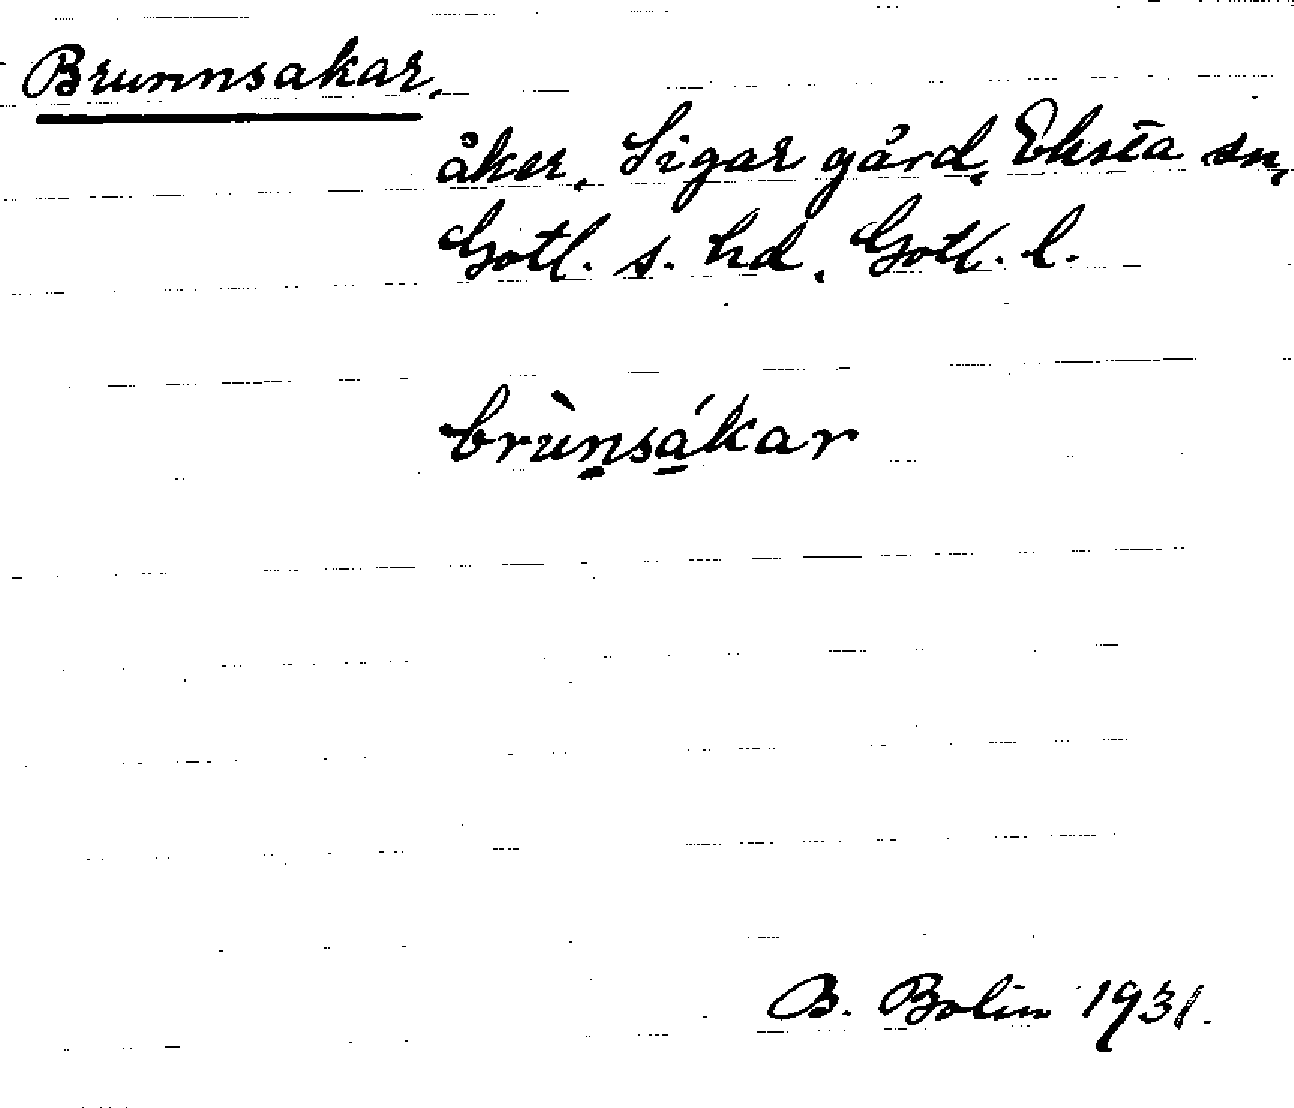 Brunnsakar.
åker, Sigar gård, Eksta sn,
Gotl. s. hd, Gotl. l.
brùnsákar
B. Bolin 1931.